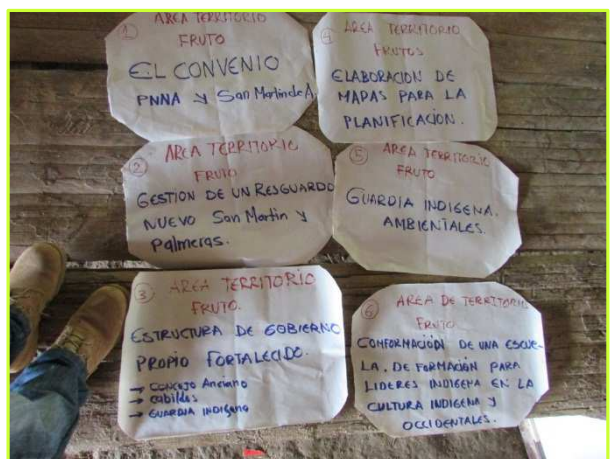 ① AREA TERRITORIO
FRUTO
EL CONVENIO
PNNA y San Martin de A.
② AREA TERRITORIO
FRUTO
GESTION DE UN RESGUARDO
NUEVO San Martin y
Palmeras.
③ AREA TERRITORIO
FRUTO.
ESTRUCTURA DE GOBIERNO
PROPIO FORTALECIDO.
→ CONCEJO Anciano
→ cabildos
→ GUARDIA INDIGENA
④ AREA TERRITORIO
FRUTOS
ELABORACION DE
MAPAS PARA LA
PLANIFICACIÓN.
⑤ AREA TERRITORIO
FRUTO
GUARDIA INDIGENA.
AMBIENTALES.
⑥ AREA DE TERRITORIO
FRUTO
CONFORMACIÓN DE UNA ESCUE-
LA. DE FORMACIÓN PARA
LIDERES INDIGENA EN LA
CULTURA INDIGENA Y
OCCIDENTALES.